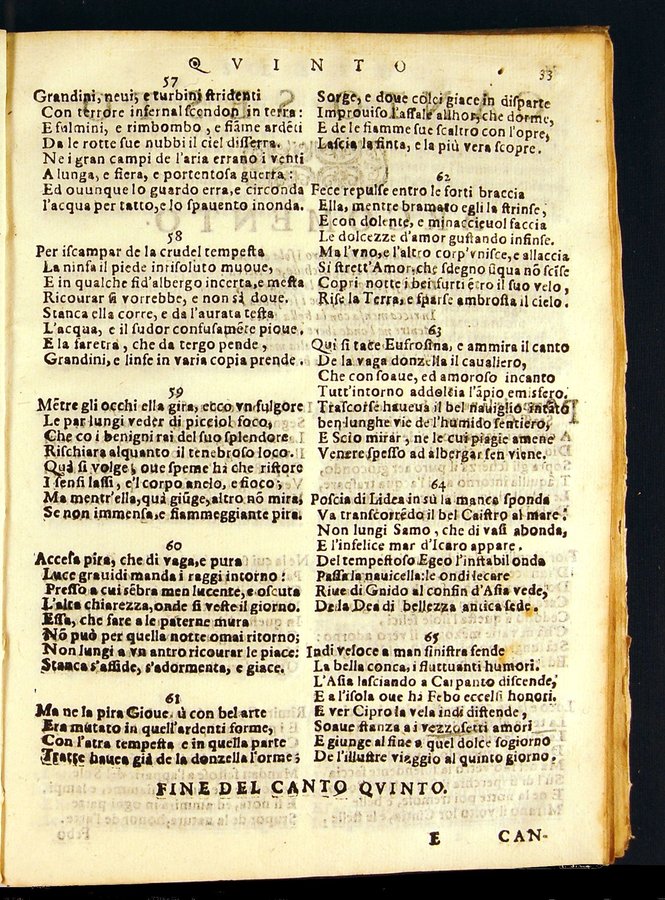 QVINTO 33
57
Grandini, neui, e turbini stridenti
Con terrore infernal scendon in terra:
E fulmini, e rimbombo, e fiāme ardēti
Da le rotte sue nubbi il ciel disserra.
Ne i gran campi de l'aria errano i venti
A lunga, e fiera, e portentosa guerra:
Ed ouunque lo guardo erra, e circonda
l'acqua per tatto, e lo spauento inonda.
58
Per iscampar de la crudel tempesta
La ninfa il piede inrisoluto muoue,
E in qualche fid'albergo incerta, e mesta
Ricourar si vorrebbe, e non sà doue.
Stanca ella corre, e da l'aurata testa
L'acqua, e il sudor confusamēte pioue.
E la faretra, che da tergo pende,
Grandini, e linfe in varia copia prende.
59
Mētre gli occhi ella gira, ecco vn fulgore
Le par lungi veder di picciol foco,
Che co i benigni rai del suo splendore
Rischiara alquanto il tenebroso loco.
Quà si volge, oue speme hà che ristore
I sensi lassi, e'l corpo anelo, e fioco;
Ma mentr'ella, quà giūge, altro nō mira,
Se non immensa, e fiammeggiante pira.
60
Accesa pira, che di vaga, e pura
Luce grauidi manda i raggi intorno:
Presso a cui sēbra men lucente, e oscura
L'alta chiarezza, onde si veste il giorno.
Essa, che fare a le paterne mura
Nō può per quella notte omai ritorno;
Non lungi a vn antro ricourar le piace:
Stanca s'asside, s'adormenta, e giace.
61
Ma ne la pira Gioue. ù con bel arte
Era mutato in quell'ardenti forme,
Con l'atra tempesta e in quella parte
Tratte hauea già de la donzella l'orme;
Sorge, e doue colci giace in disparte
Improuiso l'assale allhor, che dorme,
E de le fiamme sue scaltro con l'opre,
Lascia la finta, e la più vera scopre.
62
Fece repulse entro le forti braccia
Ella, mentre bramato egli la strinse,
E con dolente, e minaccieuol faccia
Le dolcezze d'amor gustando infinse.
Ma l'vno, e l'altro corp'vnisce, e allaccia
Si strett'Amor, che sdegno ūqua nō scise
Coprì notte i bei furti ētro il suo velo,
Rise la Terra, e sparse ambrosia il cielo.
63
Qui si tace Eufrosina, e ammira il canto
De la vaga donzella il caualiero,
Che con soaue, ed amoroso incanto
Tutt'intorno addolcia l'āpio emisfero.
Trascorse haueua il bel nauiglio intāto
ben lunghe vie de l'humido sentiero,
E Scio mirar, ne le cui piagie amene
Venere spesso ad albergar sen viene.
64
Poscia di Lidea in sù la manca sponda
Va transcorrēdo il bel Caistro al mare:
Non lungi Samo, che di vasi abonda,
E l'infelice mar d'Icaro appare.
Del tempestoso Egeo l'instabil onda
Passa la nauicella: le ondi lecare
Riue di Gnido al confin d'Asia vede,
De la Dea di bellezza antica sede.
65
Indi veloce a man sinistra fende
La bella conca, i fluttuanti humori.
L'Asia lasciando a Carpanto discende,
E a l'isola oue hà Febo eccelsi honori.
E ver Cipro la vela indi distende,
Soaue stanza a i vezzosetti amori
E giunge al fine a quel dolce sogiorno
De l'illustre viaggio al quinto giorno.
FINE DEL CANTO QVINTO.
E CAN-